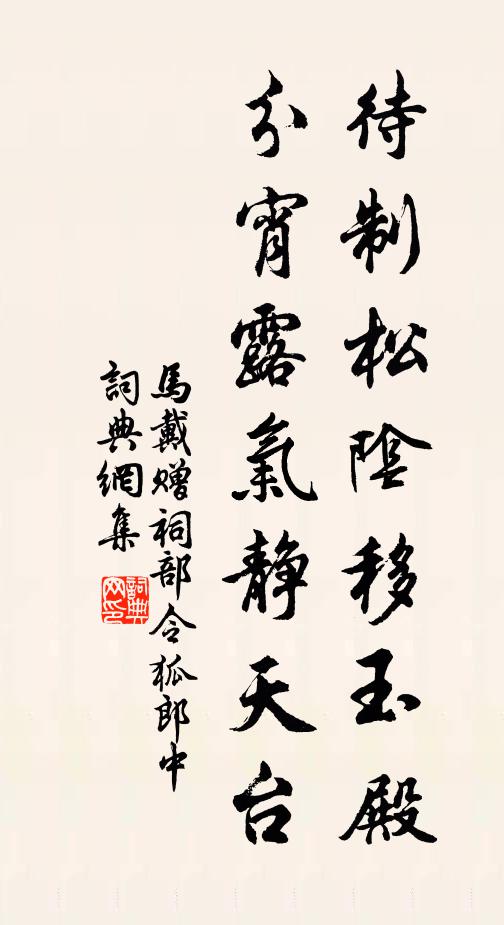 待制松陰移玉殿
分宵露氣靜天台
馬戴贈祠部令狐郎中
詞典網集
詞典网印